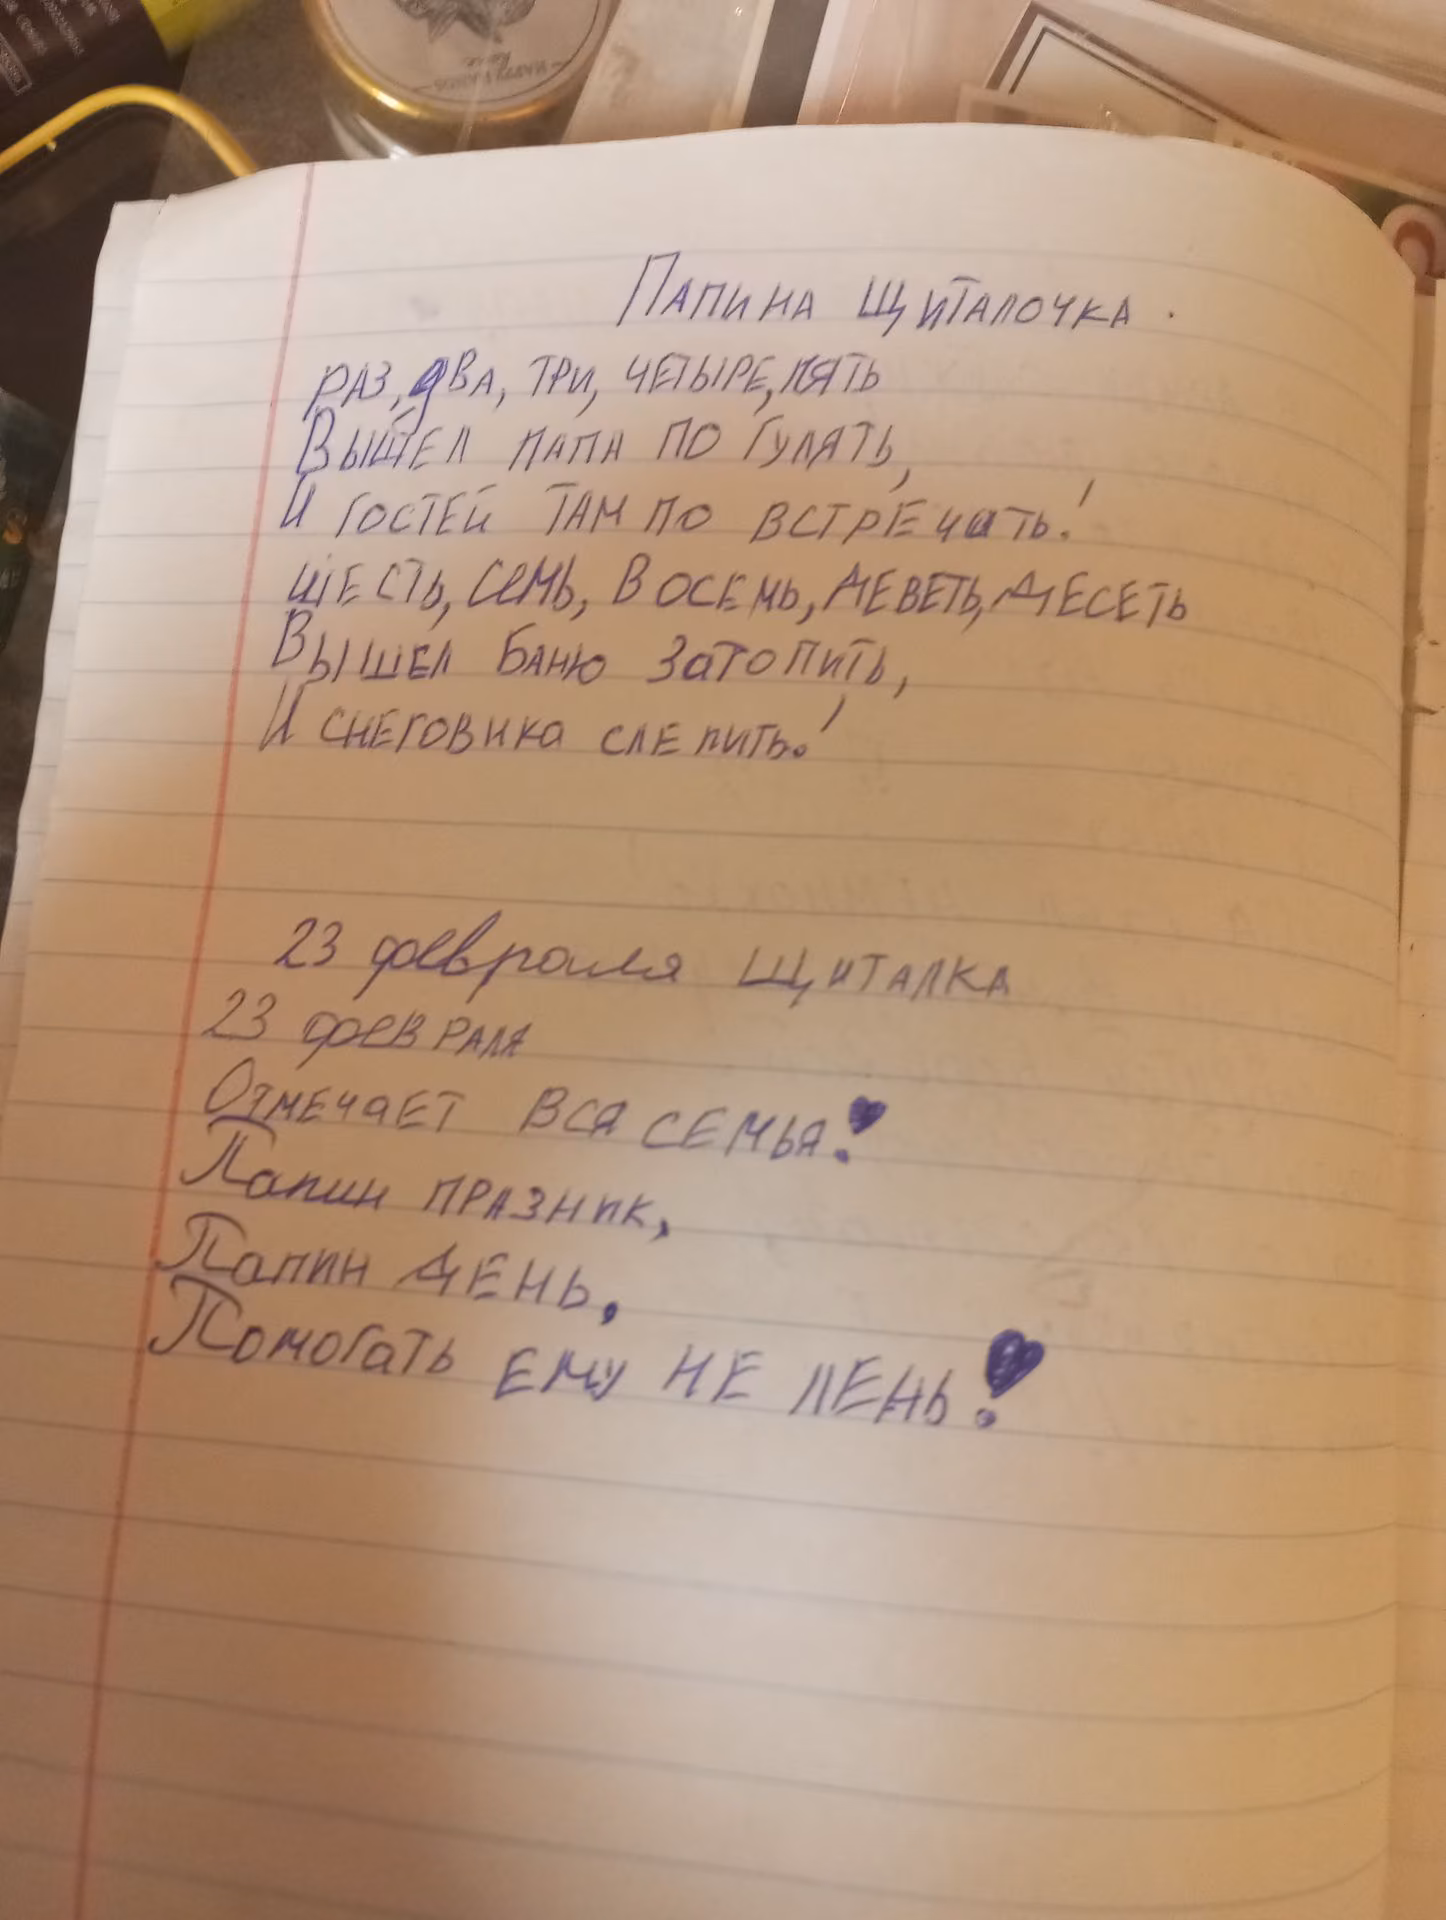 Папина щиталочка.
раз, два, три, четыре, пять
Вышел папа по гулять,
И гостей там по встречать!
шесть, семь, восемь, деветь, десеть
Вышел баню затопить,
И снеговика слепить!
23 февраля щиталка
23 февраля
Отмечает вся семья!
Папин празник,
Папин день,
Помогать ему не лень!